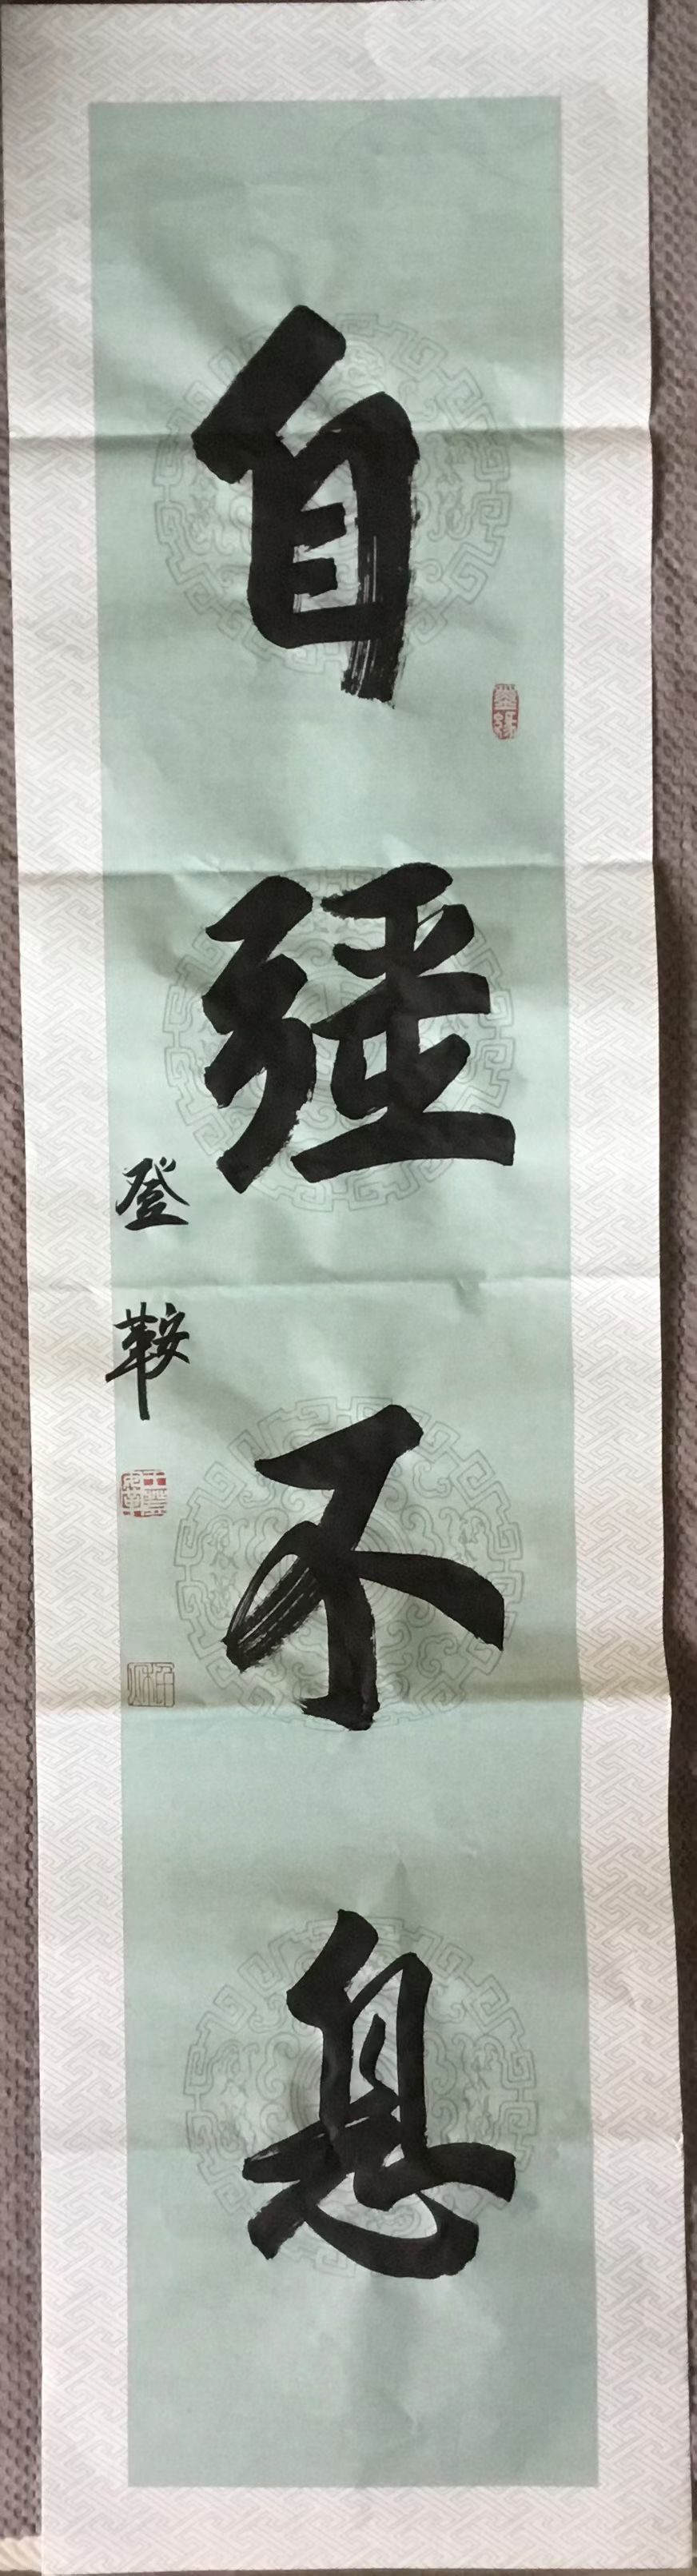 自
彊
不
息
登
鞍